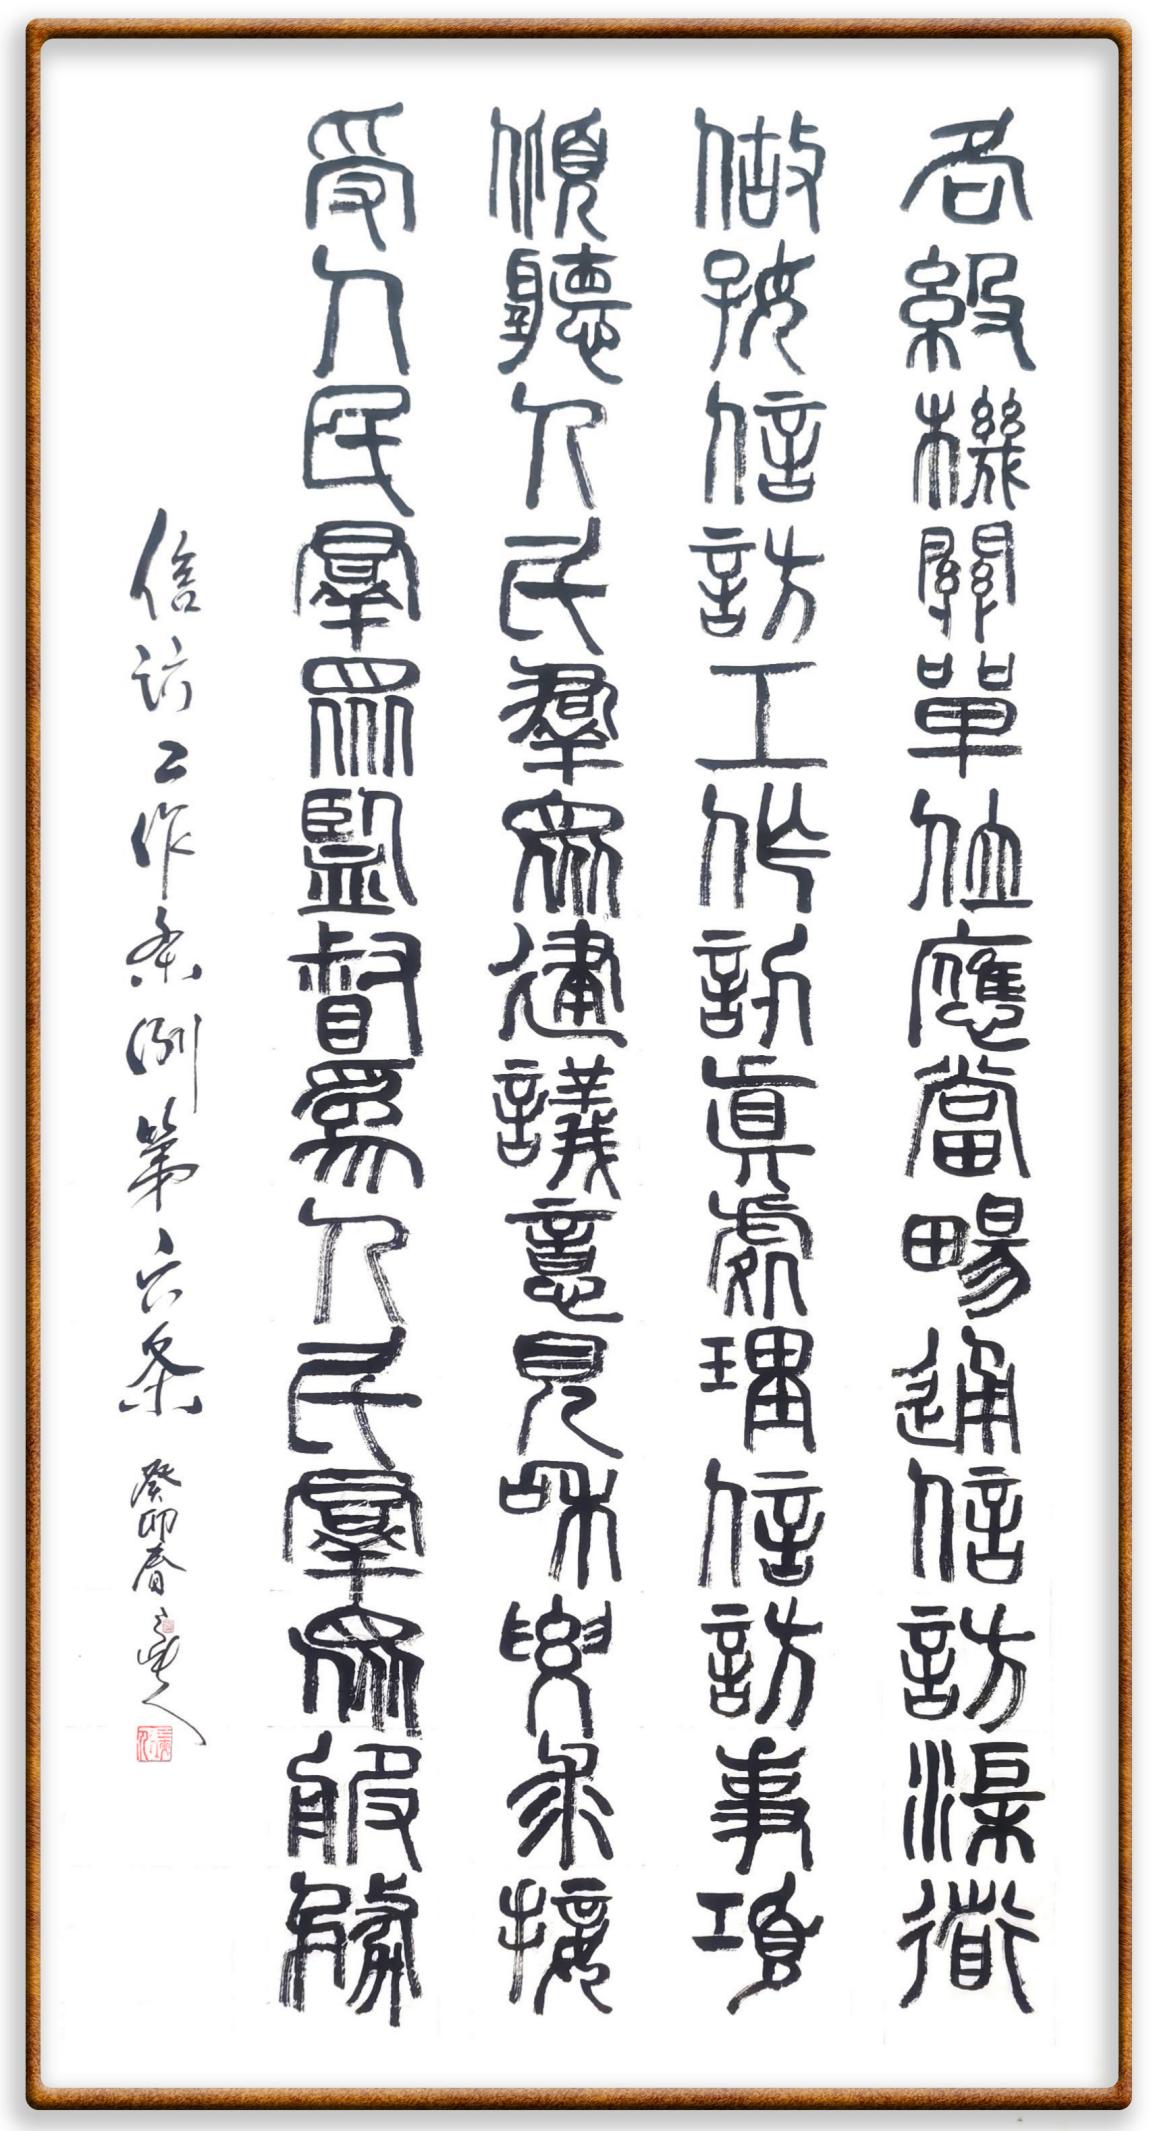 各級機關單位應當暢通信訪渠道
做好信訪工作認眞處理信訪事項
傾聽人民羣眾建議意見和要求接
受人民羣眾監督爲人民羣眾服務
信访工作条例第六条 癸卯春